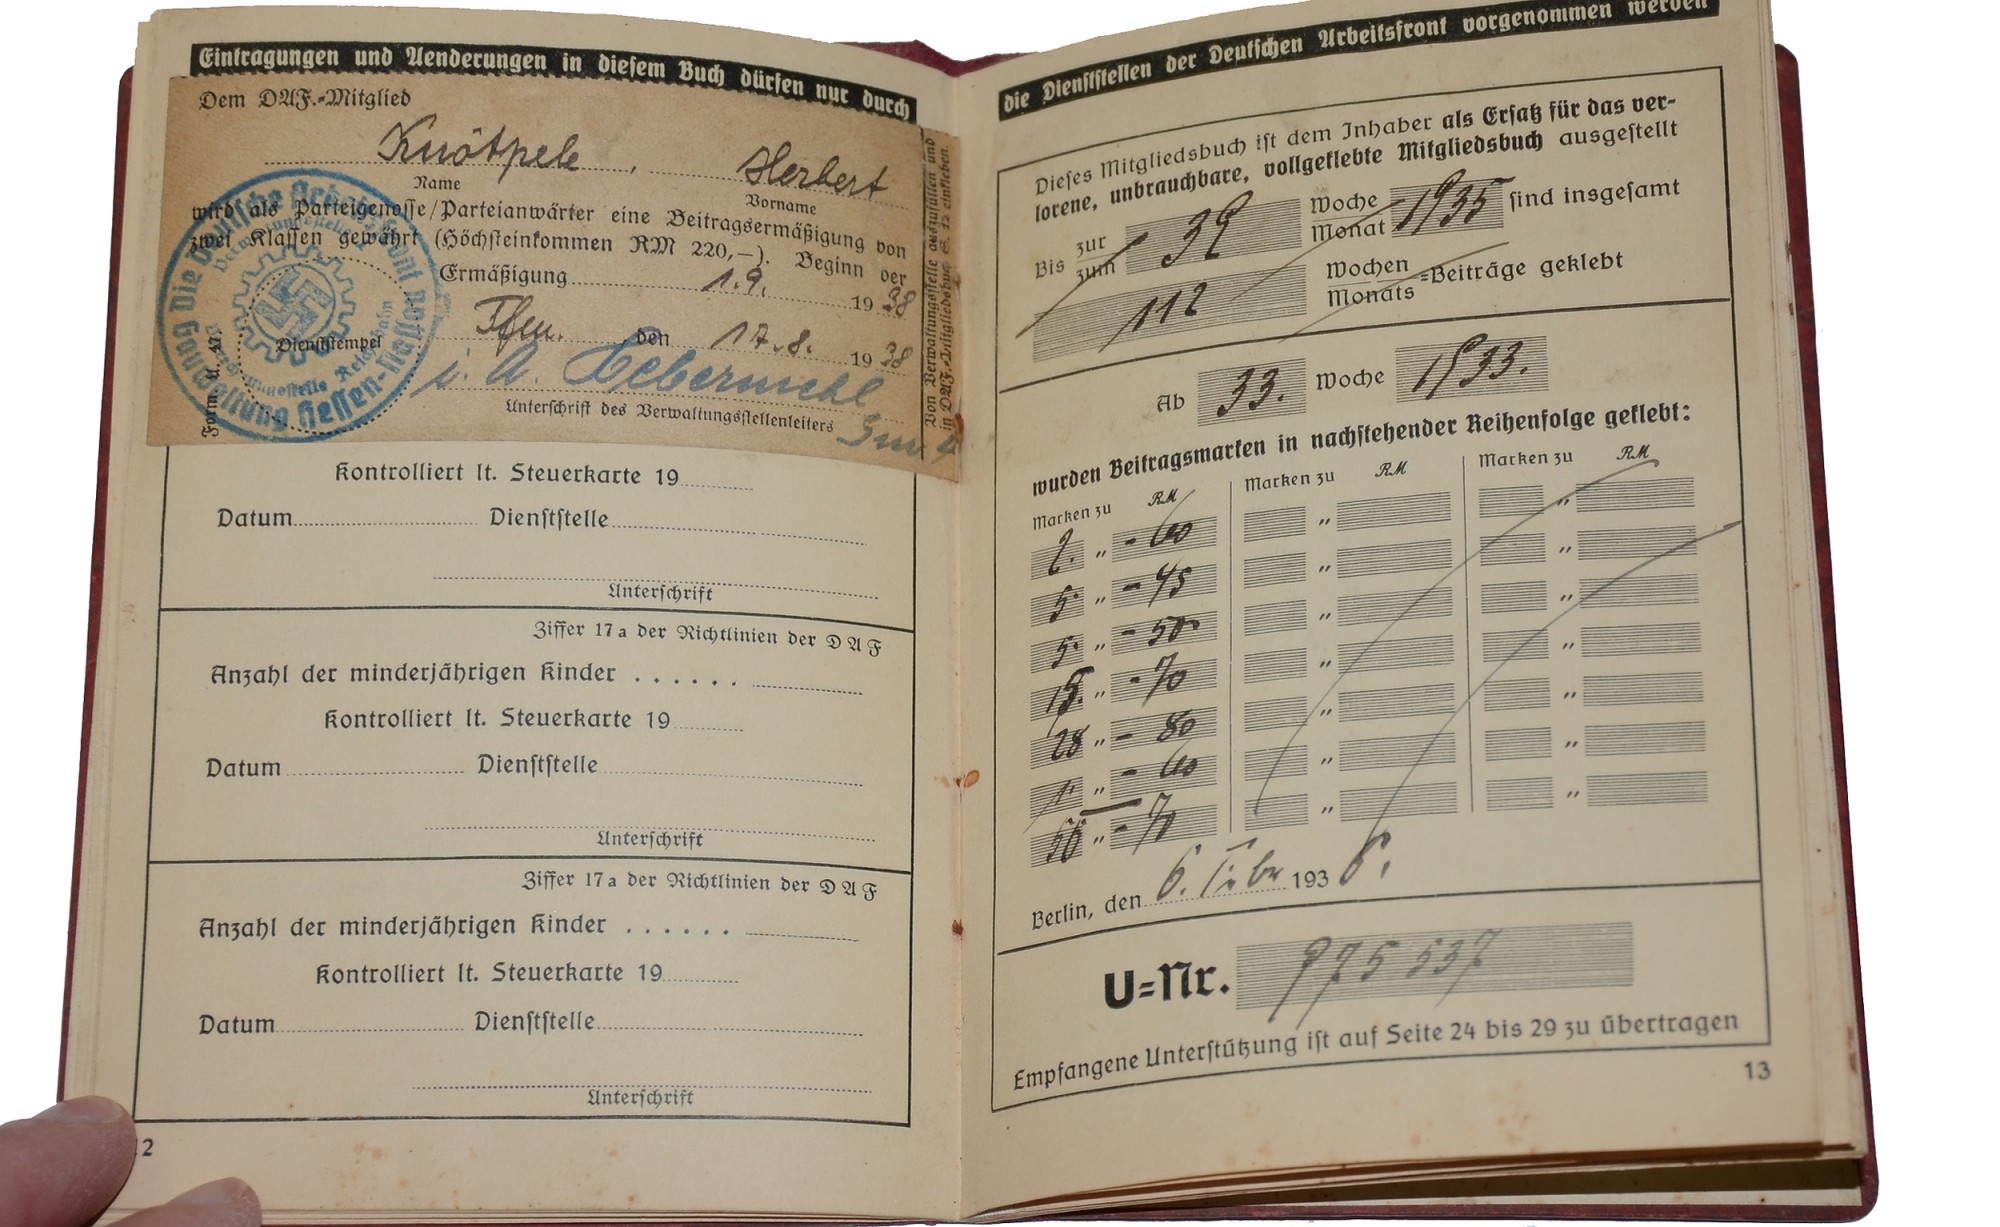 Eintragungen und Aenderungen in diesem Buch dürfen nur durch
Dem DAF.-Mitglied
Knötpele, Herbert
Name Vorname
wird als Parteigenosse/Parteianwärter eine Beitragsermäßigung von
zwei Klassen gewährt (Höchsteinkommen RM 220,—). Beginn der
Ermäßigung 1.9. 1938
Ffm. den 17.8. 1938
Dienststempel
i. A.
Unterschrift des Verwaltungsstellenleiters
Form. U. 47
Von Verwaltungsstelle auszufüllen und
in DAF.-Mitgliedsbuch S. 12 einkleben.
Die Deutsche Arbeitsfront
Gauwaltung Hessen-Nassau
Kontrolliert lt. Steuerkarte 19
Datum Dienststelle
Unterschrift
Ziffer 17a der Richtlinien der DAF
Anzahl der minderjährigen Kinder ......
Kontrolliert lt. Steuerkarte 19
Datum Dienststelle
Unterschrift
Ziffer 17a der Richtlinien der DAF
Anzahl der minderjährigen Kinder ......
Kontrolliert lt. Steuerkarte 19
Datum Dienststelle
Unterschrift
12
die Dienststellen der Deutschen Arbeitsfront vorgenommen werden
Dieses Mitgliedsbuch ist dem Inhaber als Ersatz für das ver-
lorene, unbrauchbare, vollgeklebte Mitgliedsbuch ausgestellt
Bis zur zum 39 Woche Monat 1935 sind insgesamt
112 Wochen Monats =Beiträge geklebt
Ab 33. Woche 1933.
wurden Beitragsmarken in nachstehender Reihenfolge geklebt:
Marken zu RM Marken zu RM Marken zu RM
2. " - 60 " "
5. " - 45 " "
5. " - 50 " "
15. " - 70 " "
28 " - 80 " "
1. " - 60 " "
56 " - 70 " "
Berlin, den 6. Febr 1936.
U=Nr. 975 537
Empfangene Unterstützung ist auf Seite 24 bis 29 zu übertragen
13